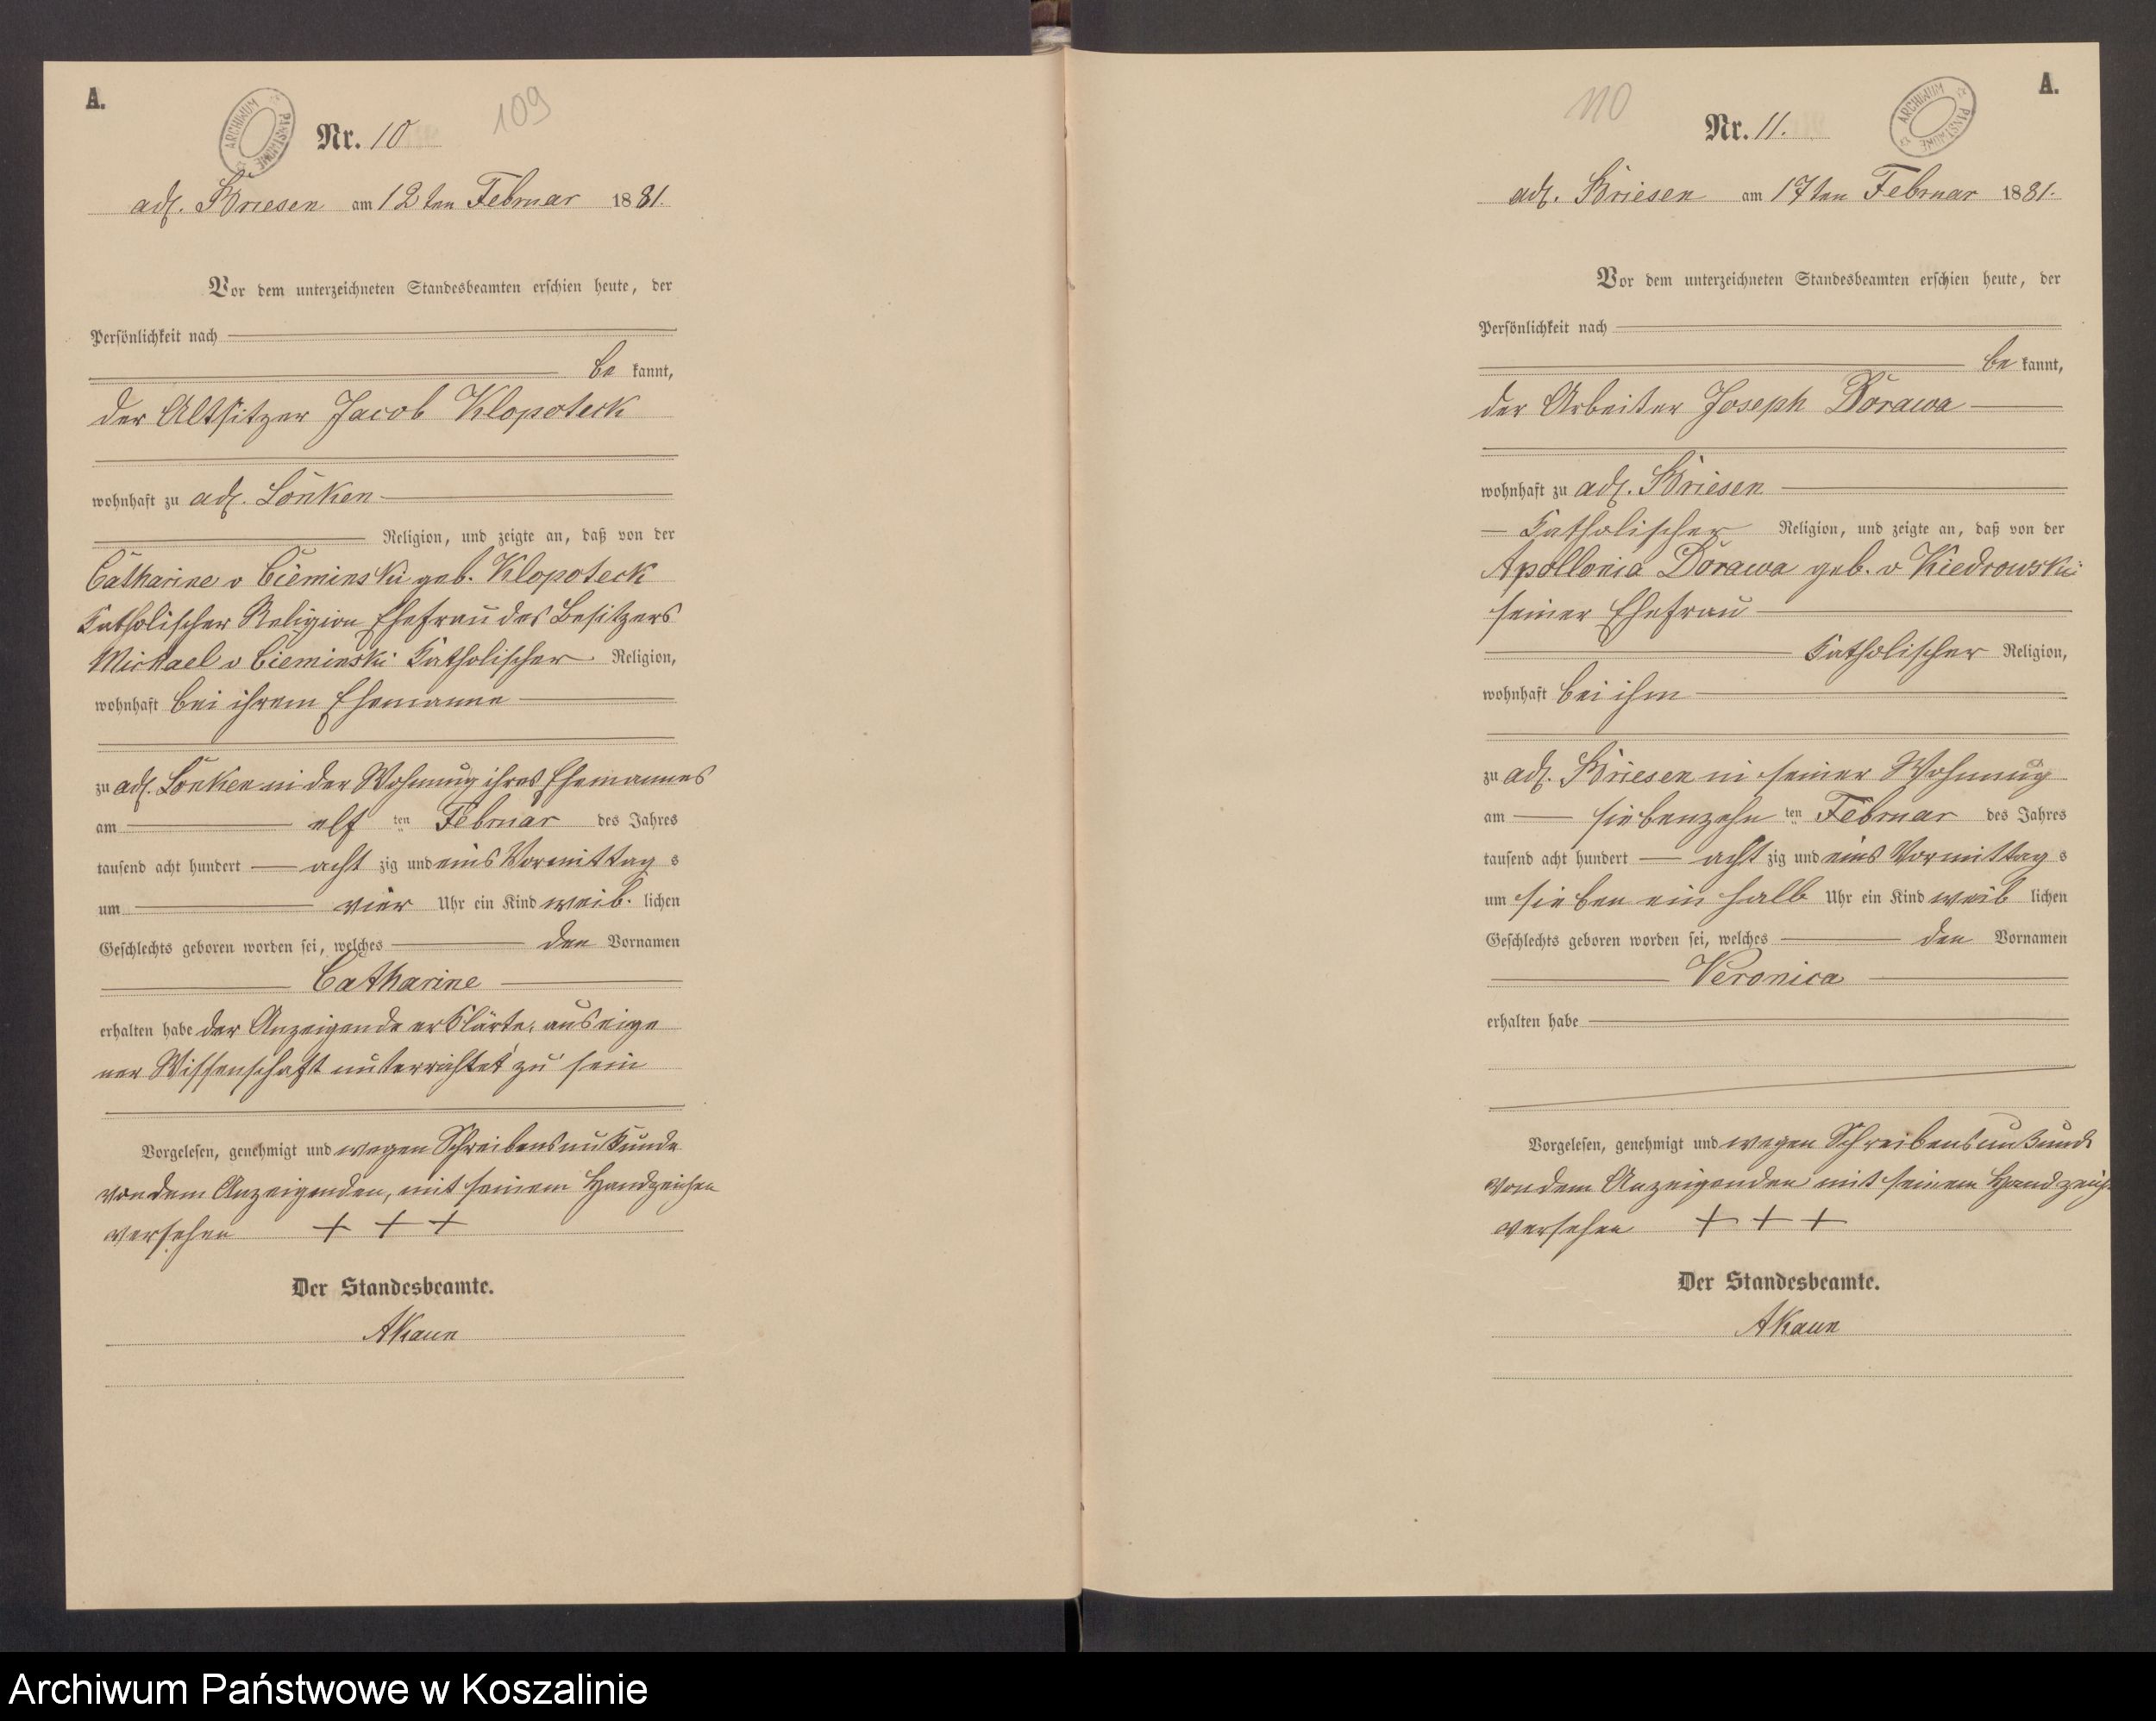 A.
ARCHIWUM PAŃSTWOWE
Nr. 10
109
adl. Briesen am 12ten Februar 1881.
Vor dem unterzeichneten Standesbeamten erschien heute, der
Persönlichkeit nach
be kannt,
der Altsitzer Jacob Klopoteck
wohnhaft zu adl. Lonken
Religion, und zeigte an, daß von der
Catharine v Cieminski geb. Klopoteck
Katholischer Religion Ehefrau des Besitzers
Michael v Cieminski Katholischer Religion,
wohnhaft bei ihrem Ehemanne
zu adl. Lonken in der Wohnung ihres Ehemannes
am elf ten Februar des Jahres
tausend acht hundert acht zig und eins Vormittag s
um vier Uhr ein Kind weib. lichen
Geschlechts geboren worden sei, welches den Vornamen
Catharine
erhalten habe der Anzeigende erklärte, aus eige
ner Wissenschaft unterrichtet zu sein
Vorgelesen, genehmigt und wegen Schreibensunkunde
von dem Anzeigenden, mit seinem Handzeichen
versehen + + +
Der Standesbeamte.
AKaun
A.
ARCHIWUM PAŃSTWOWE
110
Nr. 11.
adl. Briesen am 17ten Februar 1881.
Vor dem unterzeichneten Standesbeamten erschien heute, der
Persönlichkeit nach
be kannt,
der Arbeiter Joseph Dorawa
wohnhaft zu adl. Briesen
Katholischer Religion, und zeigte an, daß von der
Apollonia Dorawa geb. v Kiedrowski
seiner Ehefrau
Katholischer Religion,
wohnhaft bei ihm
zu adl. Briesen in seiner Wohnung
am siebenzehn ten Februar des Jahres
tausend acht hundert acht zig und eins Vormittag s
um sieben ein halb Uhr ein Kind weib lichen
Geschlechts geboren worden sei, welches den Vornamen
Veronica
erhalten habe
Vorgelesen, genehmigt und wegen Schreibensunkund
von dem Anzeigenden mit seinem Handzeich
versehen + + +
Der Standesbeamte.
AKaun
Archiwum Państwowe w Koszalinie